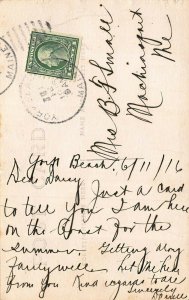 MAINE
YORK
MAINE
Mrs B F Small
Machiasport
Me
CARD
York Beach, 6/11/16
Dear Daisy
Just a card
to tell you I am here
on the Coast for the
summer. Getting along
fairly well. Let me hear
from you Kind regards to all
Sincerely